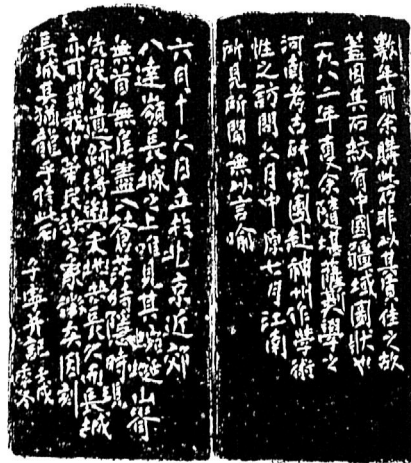 數年前余購此石非以其質佳之故
蓋因其石紋有中國疆域圖狀也
一九八二年夏余隨堪薩斯大學之
河南考古研究團赴神州作學術
性之訪問六月中原七月江南
所見所聞無以言喻
六月十六日立於北京近郊
八達嶺長城之上唯見其蜿蜒山脊
無首無尾盡入蒼茫時隱時現
先民之遺跡得天地共長久而長城
亦可謂我中華民族之象徵矣因刻
長城其猶龍乎於此石
子寧并記 壬戌
季冬